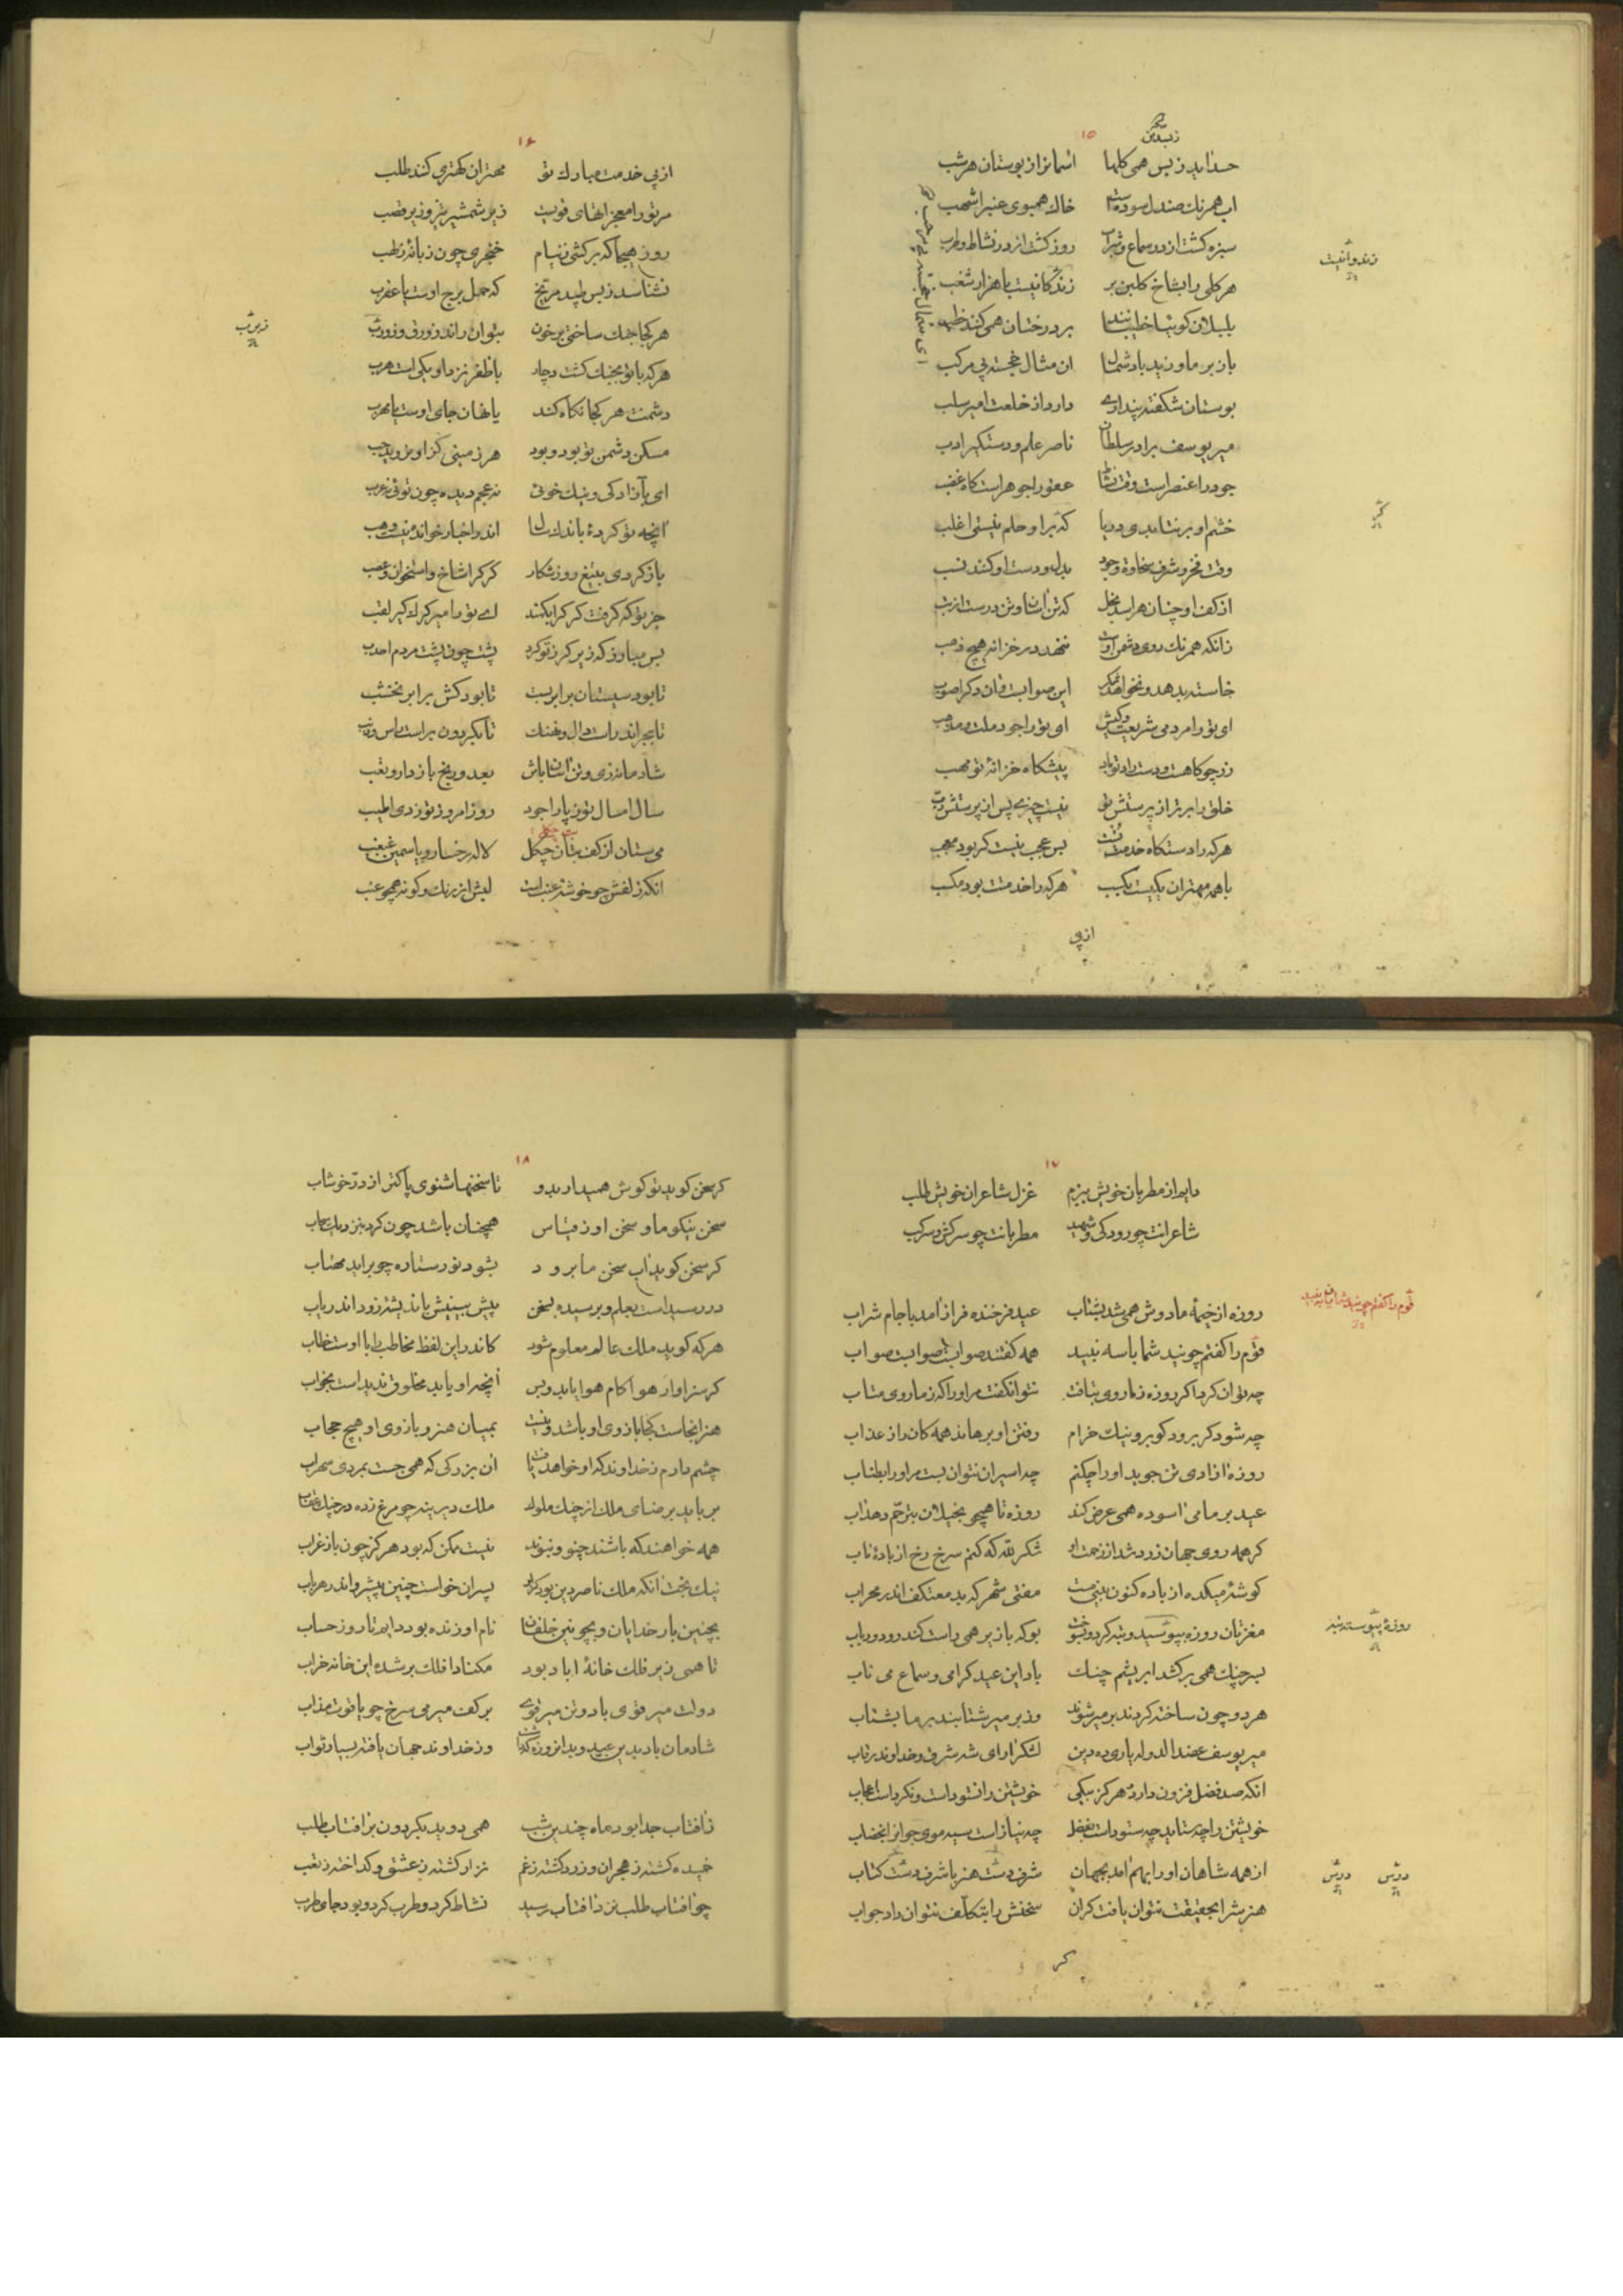 ۱۵
حسد آید ز بس همی گلها آسمانرا ز بوستان هر شب
آب همرنک صندل سوده است خاک همبوی عنبر اشهب
سبزه کشت از در سماع و شراب روز کشت از در نشاط و طرب
هر کلی را بشاخ کلبن بر زندکانیست با هزار شغب
بلبلان کوئیا خطیبانند بر درختان همی کنند خطب
باز بر ما وزید باد شمال آن مثال خجسته پی مرکب
بوستان شکفته پنداری دارد از خلعت امیر سلب
میر یوسف برادر سلطان ناصر علم و دستکیر ادب
جود را عنصر است وقت نشاط عفو را جوهر است کاه غضب
خشم او بر نتابدی دریا کر بر او حلم نیستی اغلب
وقت فخر و شرف سخاوت و جود بدل و دست او کنند نسب
از کف او چنان هراسد بخل که تن آسان و تن درست از تب
زانکه همرنک روی دشمن اوست ننهد در خزانه هیچ ذهب
خاسته بدهد و نخواهد شکر این صوابست و آن دکر اصوب
ای تو را مردمی شریعت و کیش ای تو را جود ملت و مذهب
زر چو کاهست و دست راد تو باد پیشکاه خزانهٔ تو مهب
خلق را برتر از پرستش تو نیست چیزی پس از پرستش رب
هر که را دستکاه خدمت تست بس عجب نیست کر بود معجب
با همه مهتران بکیست بکسب هر که را خدمتت بود مکسب
از پی
زندوانیست
۱۶
از پی خدمت مبارک تو مهتران کهتری کنند طلب
مر تو را معجزاتهای قویست زیر شمشیر تیز و زیر قصب
روز هیجا که برکشی ز نیام خنجری چون زبانهٔ ز لهب
نشناسد ز بس طپد مریخ که حمل برج اوست یا عقرب
هر کجا جنک ساختی بر خون بتوان راند زورق و زورب
هر که با تو بجنک کشت دچار با ظفر نزد او یکی است هرب
دشمنت هر کجا نکاه کند یا نهان جای اوست یا مهرب
مسکن دشمن تو بود و بود هر زمینی کز او نروید حب
ای بآزادکی و نیک خوئی نه عجم دیده چون توئی نه عرب
آنچه تو کردهٔ باندک سال اندر اخبار خوانده نیست وهب
باز کردی بتیغ روز شکار کرکرا شاخ و استخوان و عصب
جز تو که کرفت کرکرا بکمند ای تو را میر کرک کیر لقب
بس مبارز که زیر کرز تو کرد پشت چون پشت مردم احدب
تا بود سیستان برابر بست تا بود کش برابر نخشب
تا ببحر اندر است وال و نهنک تا بکردون بر است راس و ذنب
شادمانه زی و تن آسان باش بعدو رنج باز دار و تعب
سال امسال تو ز پار اجود روز امروز تو ز دی اطیب
می ستان از کف بتان چکل لاله رخسار و یاسمین غبغب
آنکه زلفش چو خوشهٔ عنب است لبش از رنک و کونه همچو عنب
۱۷
دایم از مطربان خویش ببزم غزل شاعران خویش طلب
شاعرانت چو رودکی و شهید مطربانت چو سرکش و سرکب
روزه از خیمهٔ ما دوش همی شد بشتاب عید فرخنده فراز آمد با جام شراب
قوم را کفتم چونید شما با سه نبید همه کفتند صوابست صوابست صواب
چه توان کرد اکر روزه ز ما روی بتافت نتوان کفت مر او را که ز ما روی متاب
چه شود کر برود کو برو و نیک خرام رفتن او برهاند همه کان را ز عذاب
روزه آزادی تن جوید او را چکنم چه اسیران نتوان بست مر او را بطناب
عید بر ما می آسوده همی عرض کند روزه تا همچو بخیلان بترحم دهد آب
کر همه روی جهان زرد شد از زحمت او شکر لله که کنم سرخ رخ از بادهٔ ناب
کوشهٔ میکده از باده کنون بینی مست مفتی شهر که بد معتکف اندر محراب
بسر چنک همی برکشد ابریشم چنک باد این عید کرامی و سماع می ناب
هر دو چون ساخته کردند بر میر شوند وز بر میر شتابند بر ما بشتاب
میر یوسف عضد الدوله یاری ده دین لشکر آرای شه شرق و خداوند رقاب
آنکه صد فضل فزون دارد هرکز بیکی خویشتن را نستوداست و نکرد است اعجاب
خویشتن را چه ستاید چه ستوداست بفضل چه نیاز است سیه موی جوانرا بخضاب
از همه شاهان او را بهم آمد بجهان شرف دست هنر با شرف دست کتاب
هنرش را بحقیقت نتوان یافت کران سخنش را بتکلف نتوان داد جواب
کر
روزهٔ پیوسته شد
۱۸
کر سخن کوید تو کوش همیدار بدو تا سخنها شنوی پاکتر از در خوشاب
سخن نیکو ما و سخن او ز قیاس همچنان باشد چون کرد بنزدیک سحاب
کر سخن کوید آب سخن ما برود بشود نور ستاره چو برآید مهتاب
در رسید است بعلم و برسیده بسخن پیش بینیش باندیشه زود اندر یاب
هر که کوید ملک عالم معلوم شود کاندر این لفظ مخاطب را با اوست خطاب
کر سزاوار هوا کام هوا یابد و بس آنچه او یابد مخلوق ندید است بخواب
هنر آنجاست کجا بازوی او باشد و نیست بمیان هنر و بازوی او هیچ حجاب
چشم دارم ز خداوند که او خواهد یافت آن بزرکی که همی جست بمردی سهراب
برباید برضای ملک از چنک ملوک ملک دیرینه چو مرغ زده در چنک عقاب
همه خواهند که باشند چنو و نبوند نیست ممکن که بود هرکز چون باز غراب
نیک بخت آنکه ملک ناصر دین بود کرا پسران خواست چنین پیشرو اندر هر باب
بچنین بار خدایان و بچونین خلفان نام او زنده بود دایم تا روز حساب
تا همی زیر فلک خانهٔ آباد بود مکنادا فلک بر شده این خانه خراب
دولت میر قوی باد و تن میر قوی بر کف میر می سرخ چو یاقوت مذاب
شادمان باد بدین عید و بدان روزه کذشت وز خداوند جهان یافته بسیار ثواب
ز آفتاب جدا بود ماه چندین شب همی دوید بکردون بر آفتاب طلب
خمیده کشته ز هجران و زرد کشته ز غم نزار کشته ز عشق و کداخته ز تعب
چو آفتاب طلب نزد آفتاب رسید نشاط کرد و طرب کرد و بود جای طرب